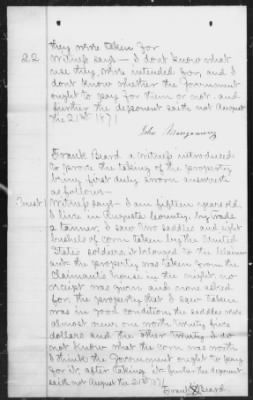 they were taken for
22 Witness says — I dont know what
use they were intended for, and I
dont know whether the Government
ought to pay for them or not, and
further the deponent saith not August
the 21st 1871
John
Frank Beard a witness introduced
to prove the taking of the property
being first duly sworn answereth
as follows —
Witness says — I am fifteen years old
I live in Augusta County, by trade
a tanner, I saw two saddles and eight
bushels of corn taken by the United
States soldiers, it belonged to the claim
ant the property was taken from the
Claimants house in the night no
receipt was given and none asked
for the property that I saw taken
was in good condition, the saddles were
almost new one worth twenty five
dollars and the other twenty I do
not know what the corn was worth
I think the Government ought to pay
for it after taking it further the deponent
saith not August the 21st 1871
Frank X Beard